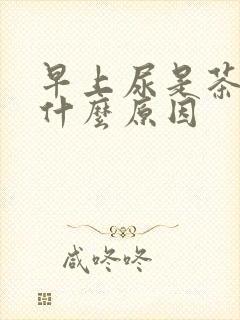 早上尿是茶
什麼原因
咸咚咚